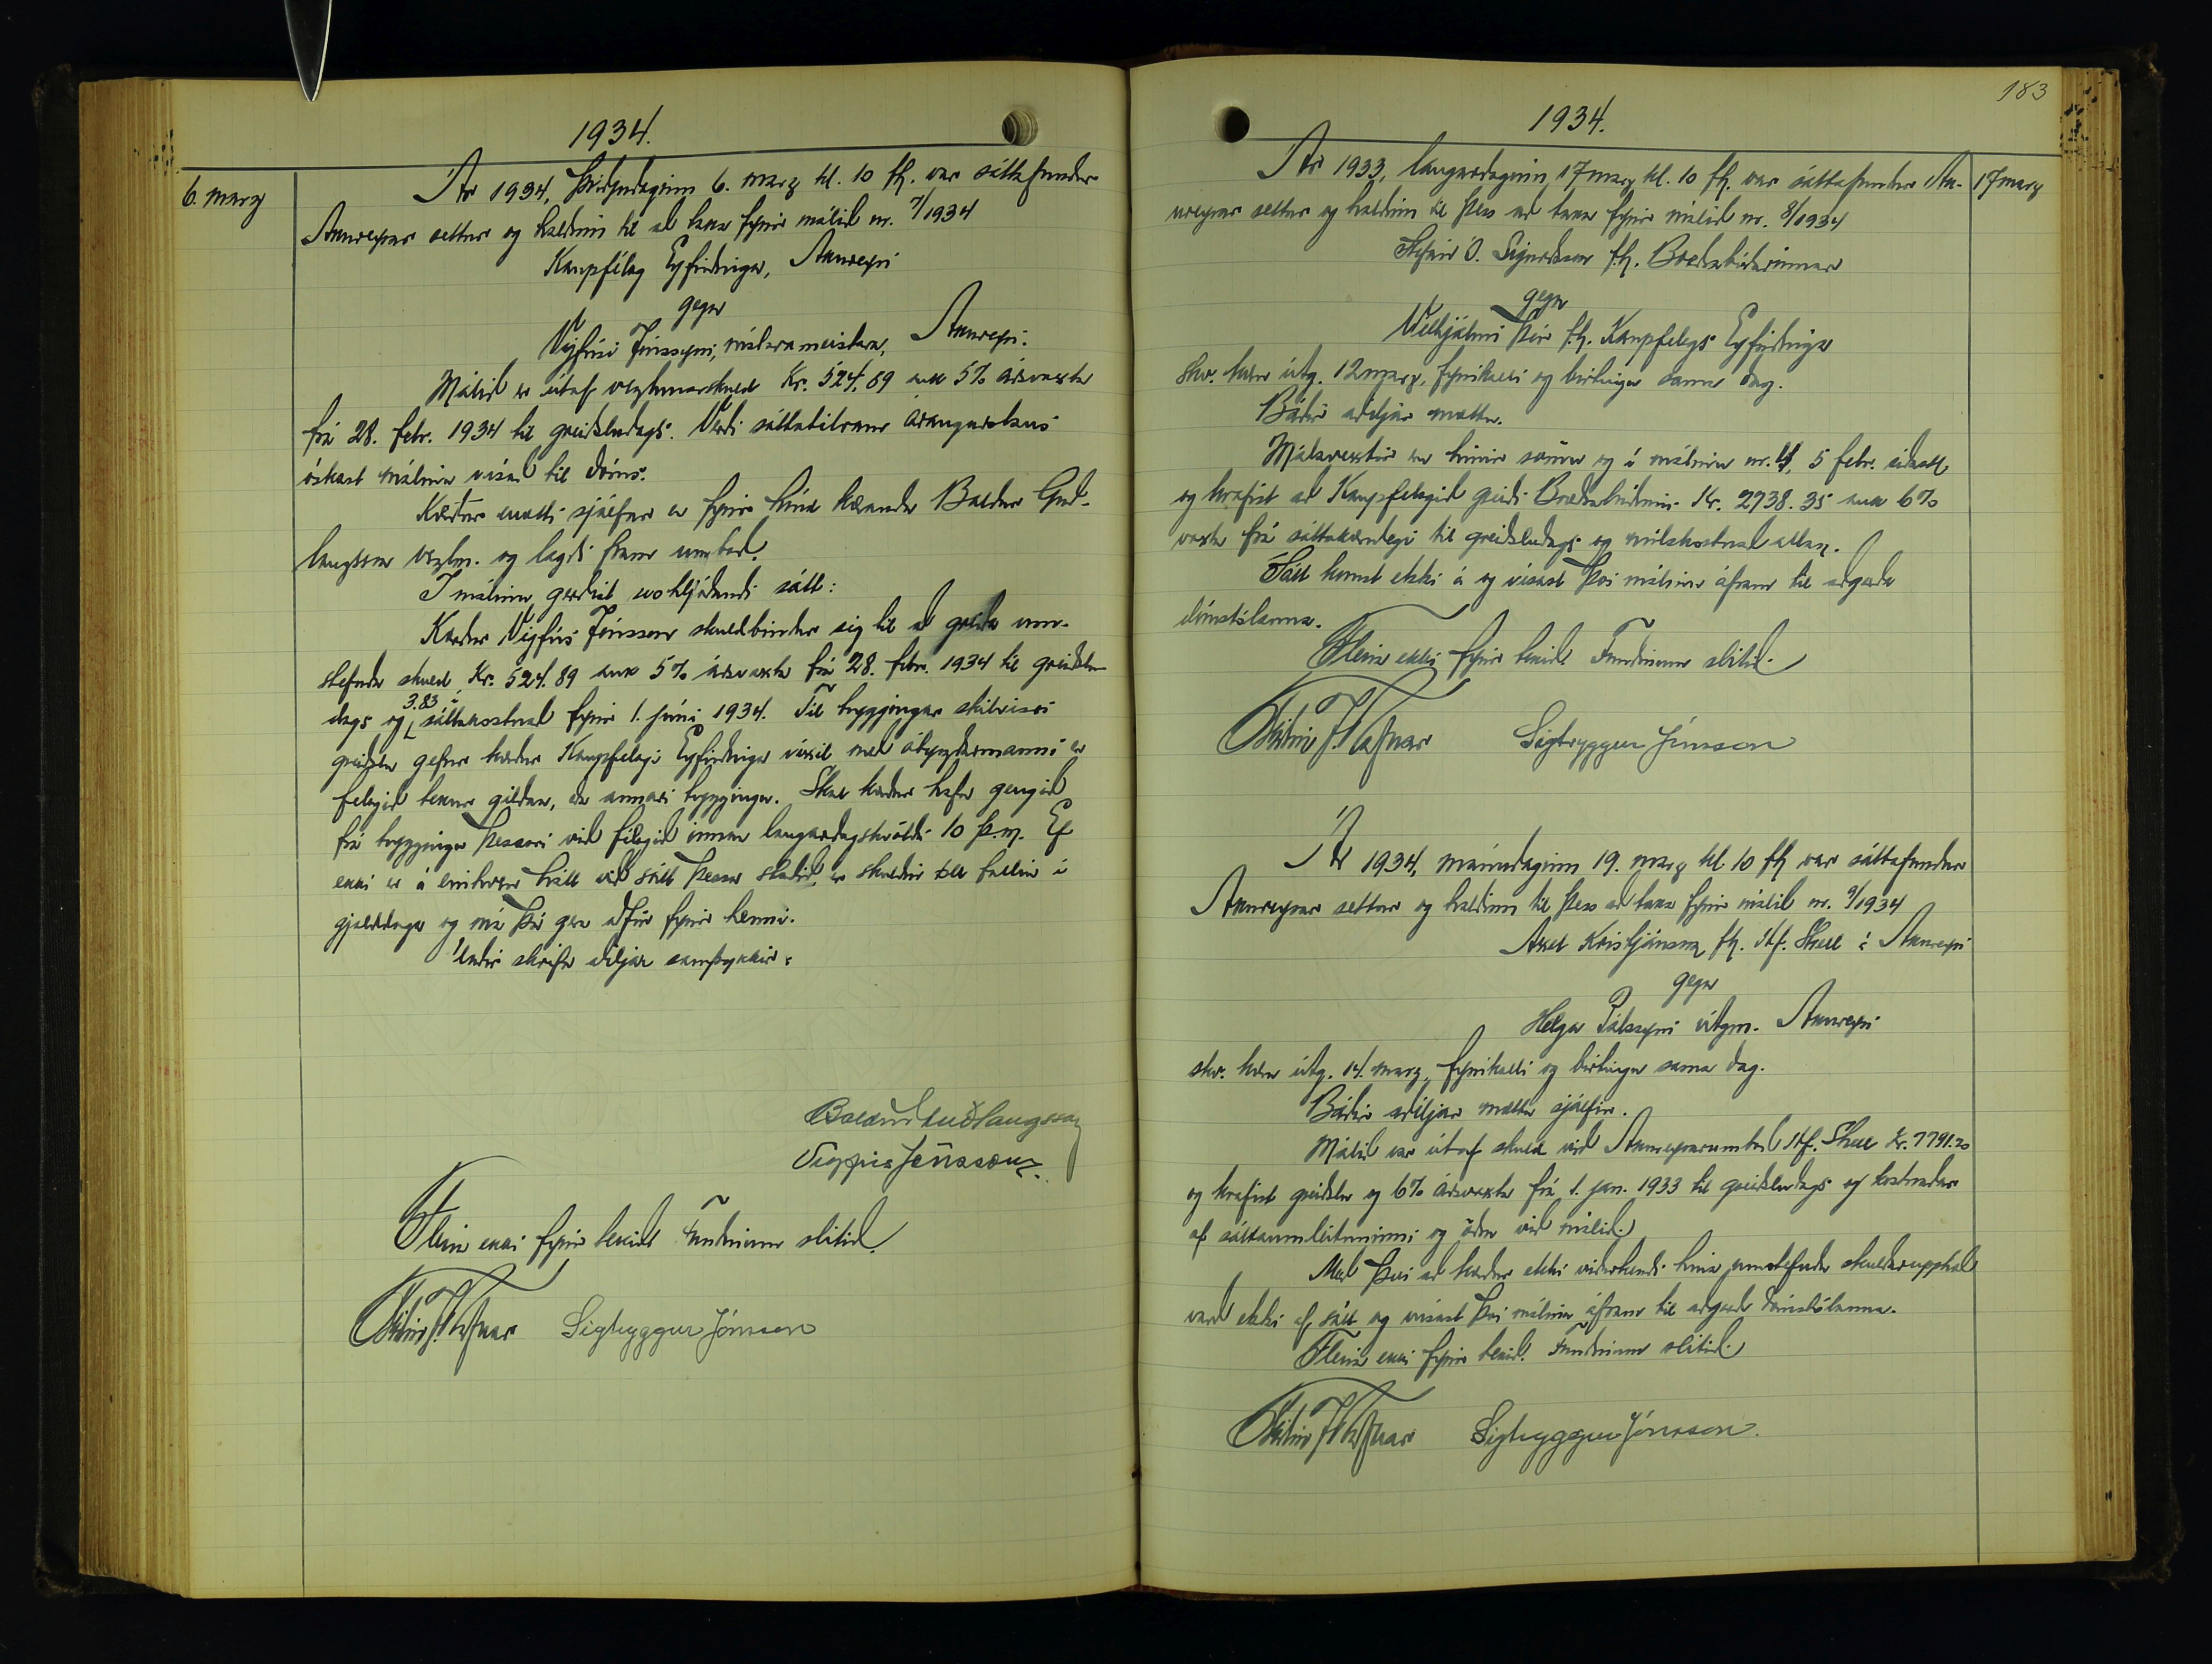 1934.
6. marz
Ár 1934, þriðjudaginn 6. marz kl. 10 fh. var sáttafundur
Akureyrar settur og haldinn til að taka fyrir málið nr. 7/1934
Kaupfélag Eyfirðinga, Akureyri
gegn
Vigfúsi Jónssyni, málarameistara, Akureyri.
Málið er útaf verzlunarskuld Kr. 524.89 auk 5% ársvaxta
frá 28. febr. 1934 til greiðsludags. Verði sáttatilraun árangurslaus
óskast málinu vísað til dóms.
Kærður mætti sjálfur en fyrir hönd kæranda Baldur Guð-
laugsson verzlm. og lagði fram umboð.
Í málinu gerðist svohljóðandi sátt:
Kærður Vigfús Jónsson skuldbindur sig til að greiða um-
stefnda skuld, Kr. 524.89 auk 5% ársvaxta frá 28. febr. 1934 til greiðslu-
dags og 3.83 í sáttakostnað fyrir 1. júní 1934. Til tryggingar skilvísri
greiðslu gefur kærður Kaupfélagi Eyfirðinga víxil með ábyrgðarmanni er
félagið tekur gildan, eða annari tryggingu. Skal kærður hafa gengið
frá tryggingu þessari við félagið innan laugardagskvölds 10 þ.m. Ef
ekki er á einhvern hátt við sátt þessa staðið, er skuldin öll fallin í
gjalddaga og má þá gera aðför fyrir henni.
Undir skrifa aðiljar samþykkir:
Baldur Guðlaugsson
Vigfús Jónsson.
Fleira ekki fyrir tekið. Fundinum slitið.
Sigtryggur Jónsson
183
1934.
17 marz
Ár 1933, laugardaginn 17 marz kl. 10 fh. var sáttafundur Ak-
ureyrar settur og haldinn til þess að taka fyrir málið nr. 8/1934
Ó. Sigurðsson f.h. Brauðabúðarinnar
gegn
Vilhjálmi Þór f.h. Kaupfélags Eyfirðinga
skv. kæru útg. 12 marz, fyrirkalli og birtingu sama dag.
Báðir aðiljar mættu.
Málavextir eru hinir sömu og í málinu nr. 4, 5 febr. síðastl.
og krafist að Kaupfélagið greiði Brauðabúðinni Kr. 2738.35 auk 6%
vexti frá sáttakærudegi til greiðsludags og málskostnað allan.
Sátt komst ekki á og vísast því málinu áfram til aðgerða
dómstólanna.
Fleira ekki fyrir tekið. Fundinum slitið.
Sigtryggur Jónsson
Ár 1934, mánudaginn 19. marz kl. 10 fh var sáttafundur
Akureyrar settur og haldinn til þess að taka fyrir málið nr. 9/1934
Axel Kristjánsson f.h. H.f. Shell á Akureyri
gegn
Helga Pálssyni útgm. Akureyri
skv. kæru útg. 14. marz, fyrirkalli og birtingu sama dag.
Báðir aðiljar mættu sjálfir.
Málið var útaf skuld við Akureyrarumboð H.f. Shell kr. 7791.20
og krafist greiðslu og 6% ársvaxta frá 1. jan. 1933 til greiðsludags og kostnaðar
af sáttaumleitaninni og öðru við málið.
Með því að kærður ekki viðurkendi hina umstefndu skuldarupphæð
varð ekki af sátt og vísast því málinu áfram til aðgerða dómstólanna.
Fleira ekki fyrir tekið. Fundinum slitið.
Sigtryggur Jónsson.